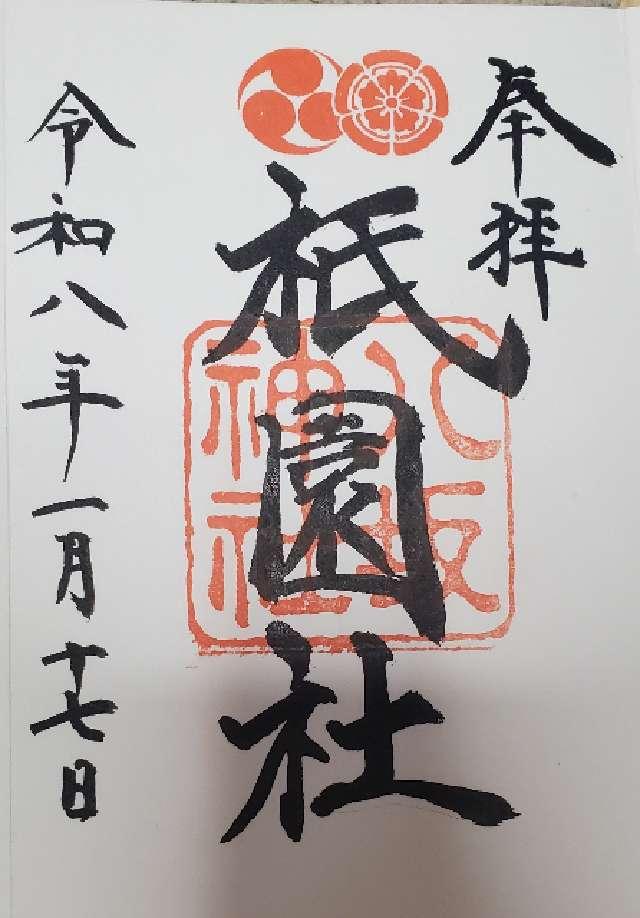 奉拝
祇園社
八坂
神社
令和八年一月十七日